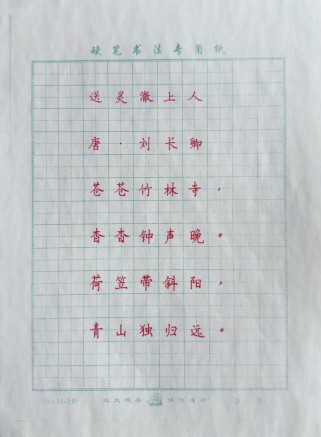 硬笔书法专用纸
送灵澈上人
唐·刘长卿
苍苍竹林寺，
杳杳钟声晚。
荷笠带斜阳，
青山独归远。